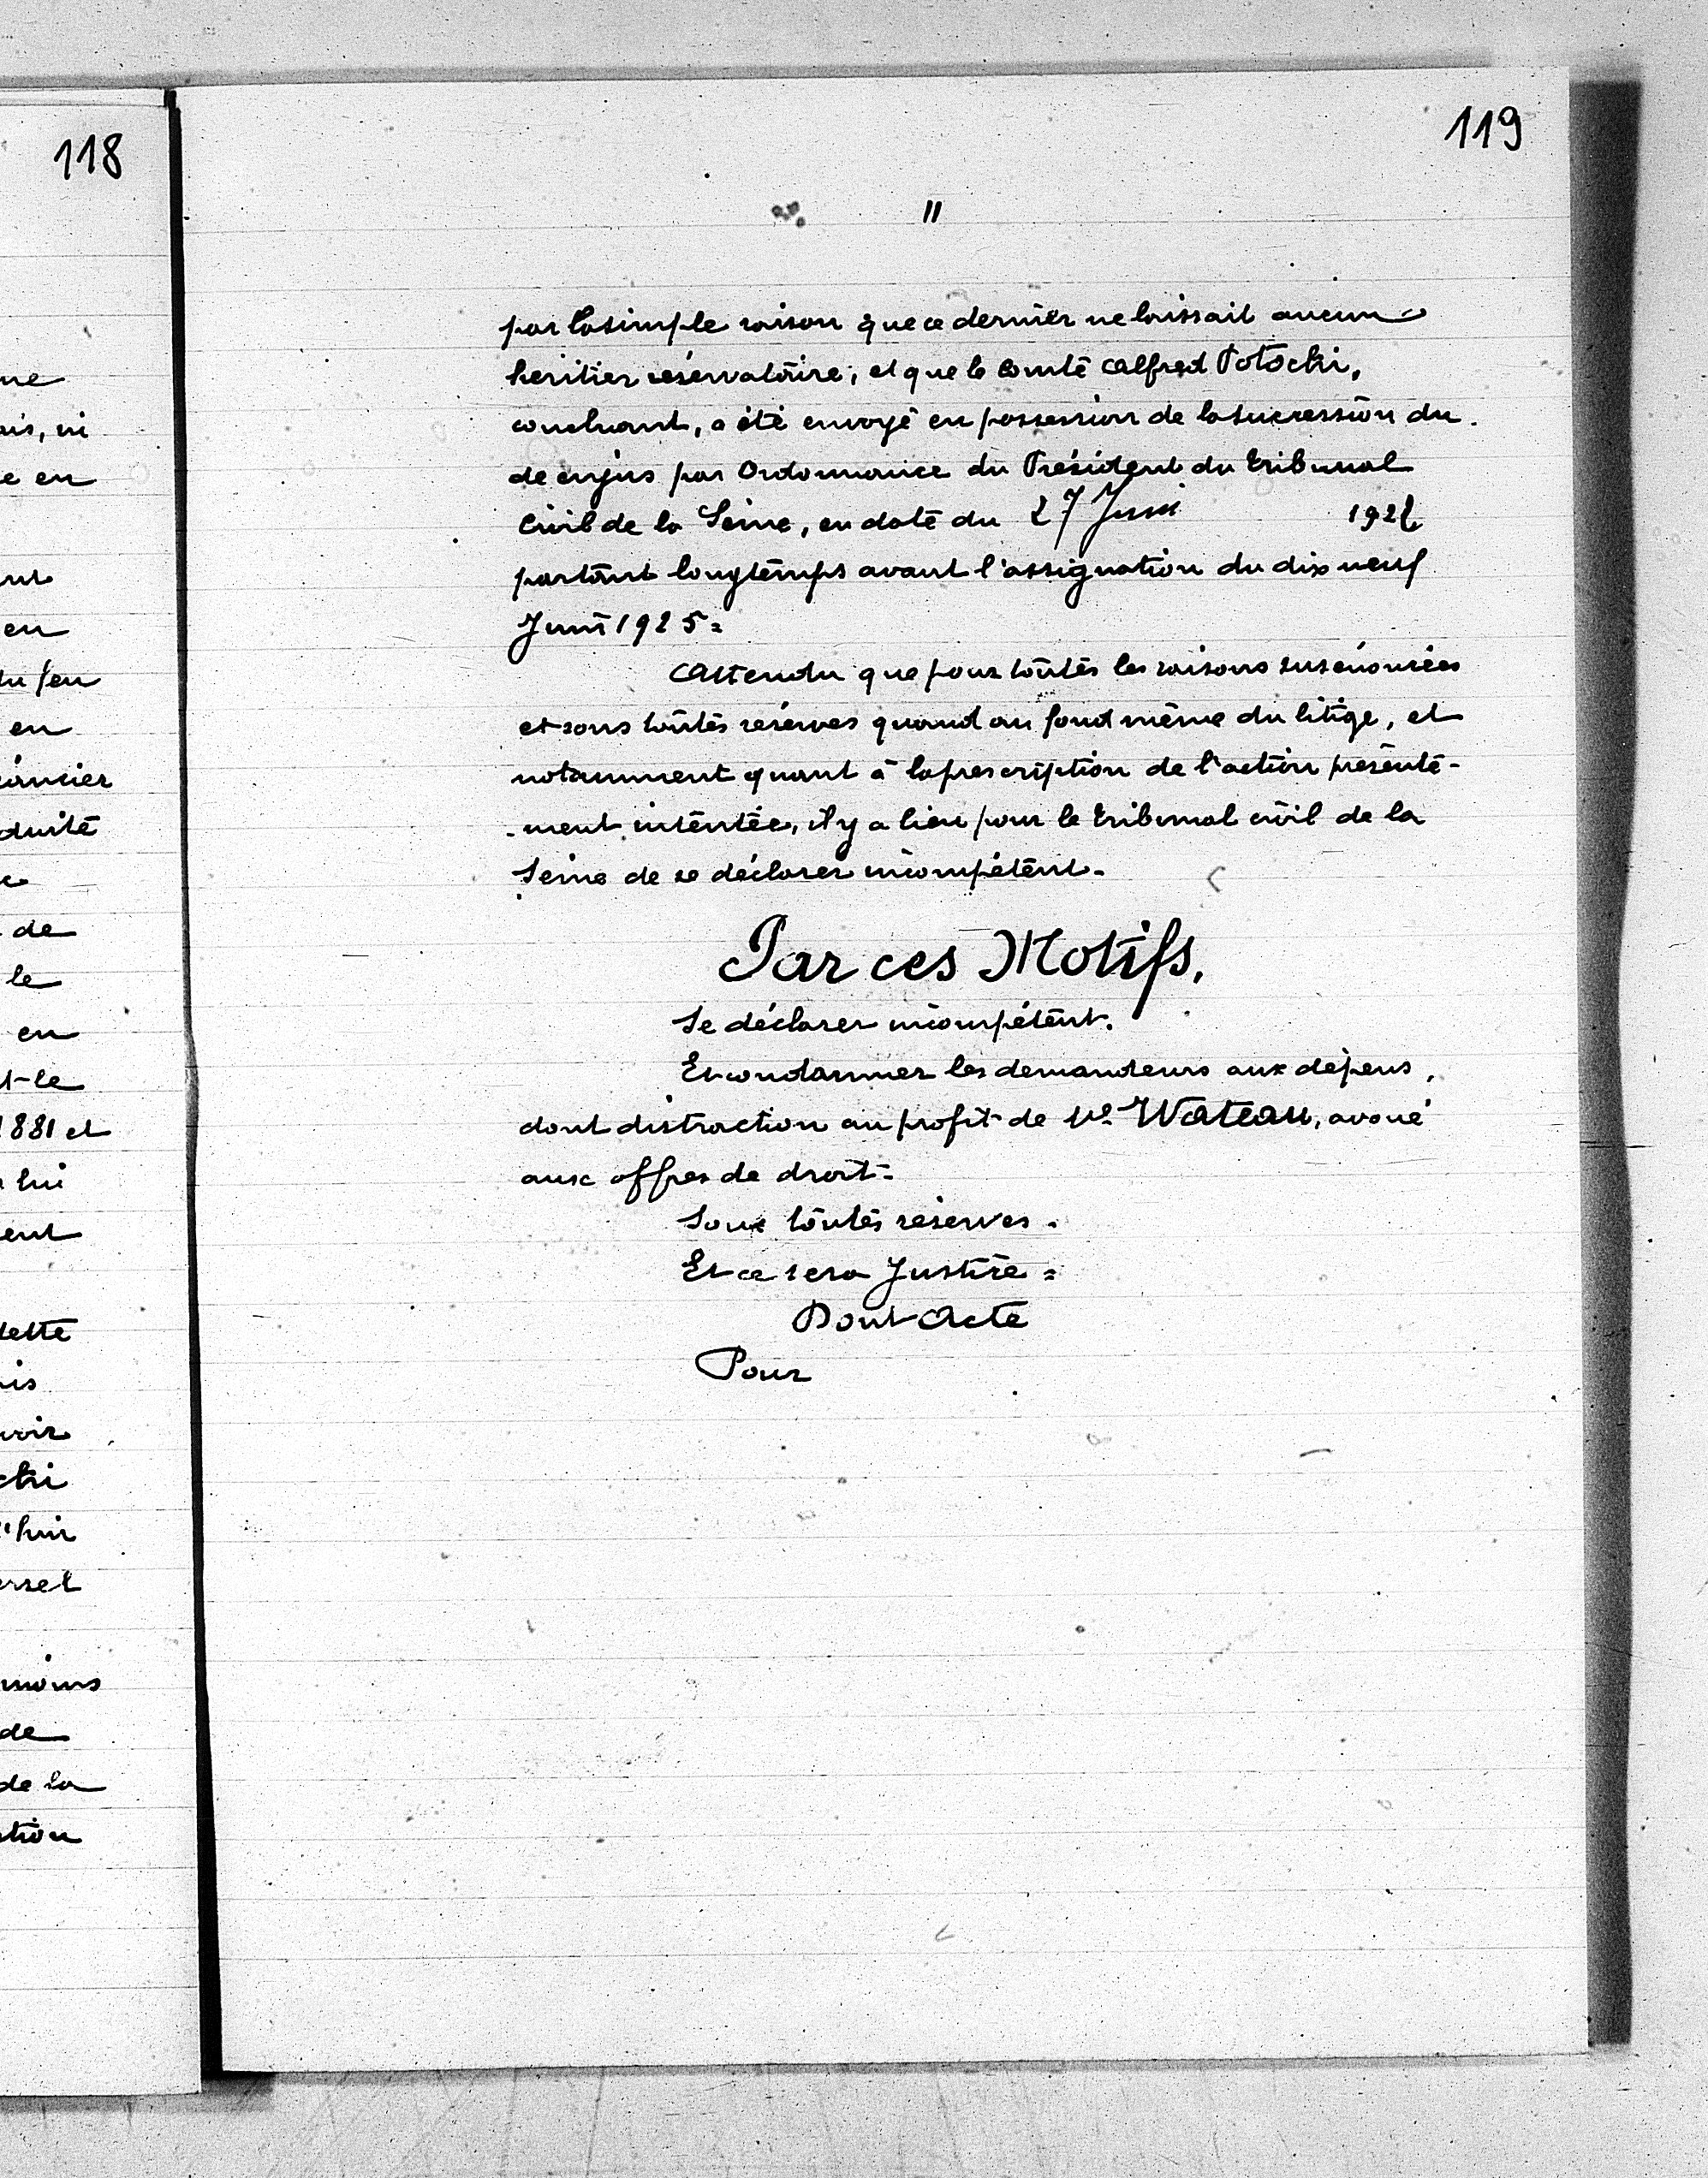 118
119
11
par la simple raison que ce dernier ne laissait aucun
heritier réservataire, et que le Comte Alfred Potocki,
concluant, a été envoyé en possession de la succession du
de cujus par Ordonnance du Président du Tribunal
Civil de la Seine, en date du 27 Juin 192
partant longtemps avant l'assignation du dix neuf
Juin 1925=
Attendu que pour toutes les raisons susénoncées
et sous toutes reserves quand au fond même du litige, et
notamment quant à la prescription de l'action présente-
-ment intentée, il y a lieu pour le Tribunal civil de la
Seine de se déclarer incompétent-
Par ces Motifs.
Se déclarer incompétent.
Et condamner les demandeurs aux dépens,
dont distraction au profit de Me Wateau, avoué
aux offres de droit-
Sous toutes reserves.
Et ce sera Justice=
Dont Acte
Pour
ne
ais, ni
e en
ent
en
du feu
en
éancier
duite
de
le
en
t-le
1881 et
lui
ent
dette
is
voir
cki
'hui
ersel
moins
de
de la
tion